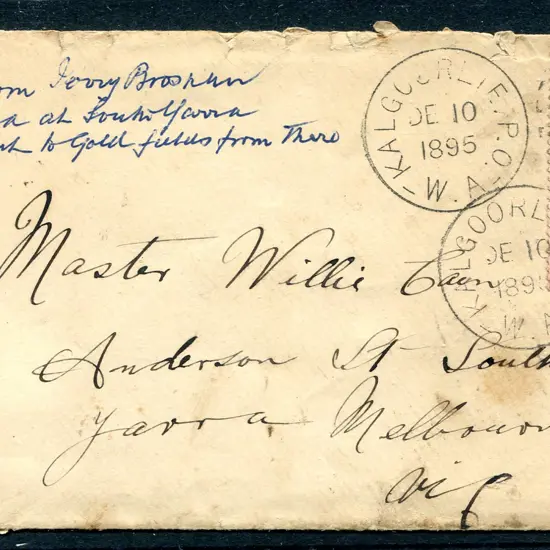 om
a at South Yarra
nt to Gold fields from There
KALGOORLIE. P.O.
DE 10
1895
W.A.
KALGOORL
DE 10
189
W.
Master Willie
Anderson St South
Yarra Melbourn
Vic